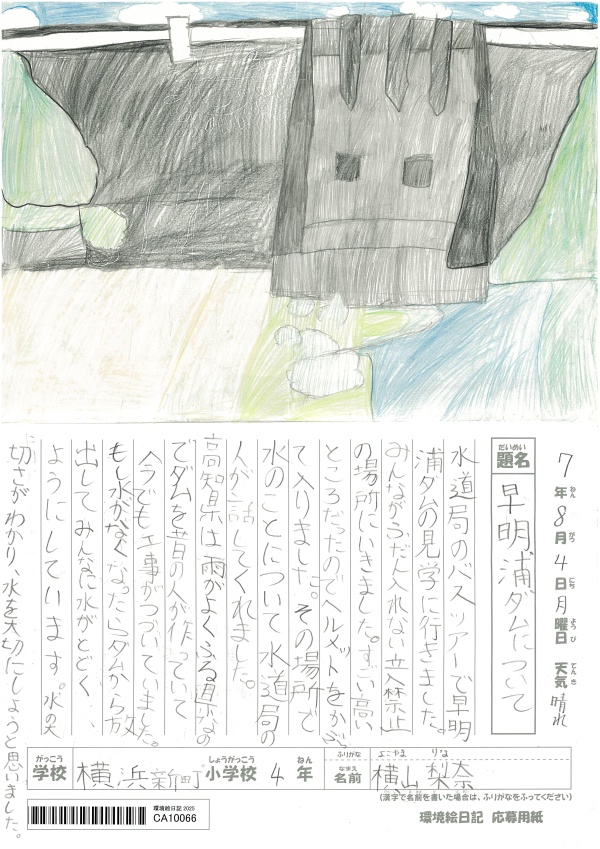 7年8月4日月曜日 天気 晴れ
ねん がつ にち ようび てんき
だいめい
題名 早明浦ダムについて
水道局のバスツアーで早明
浦ダムの見学に行きました。
みんながふだん入れない立入禁止
の場所にいきました。すごい高い
ところだったのでヘルメットをかぶっ
て入りました。その場所で
水のことについて水道局の
人が話してくれました。
高知県は雨がよくふる県なの
でダムを昔の人が作っていて
今でも工事がつづいていました。
もし水がなくなったらダムから放
出してみんなに水がとどく
ようにしています。水の大
切さがわかり、水を大切にしようと思いました。
がっこう しょうがっこう ねん ふりがな よこやま りな
学校 横浜新町 小学校 4年 なまえ 名前 横山 梨奈
(漢字で名前を書いた場合は、ふりがなをふってください)
環境絵日記 2025
CA10066
環境絵日記 応募用紙